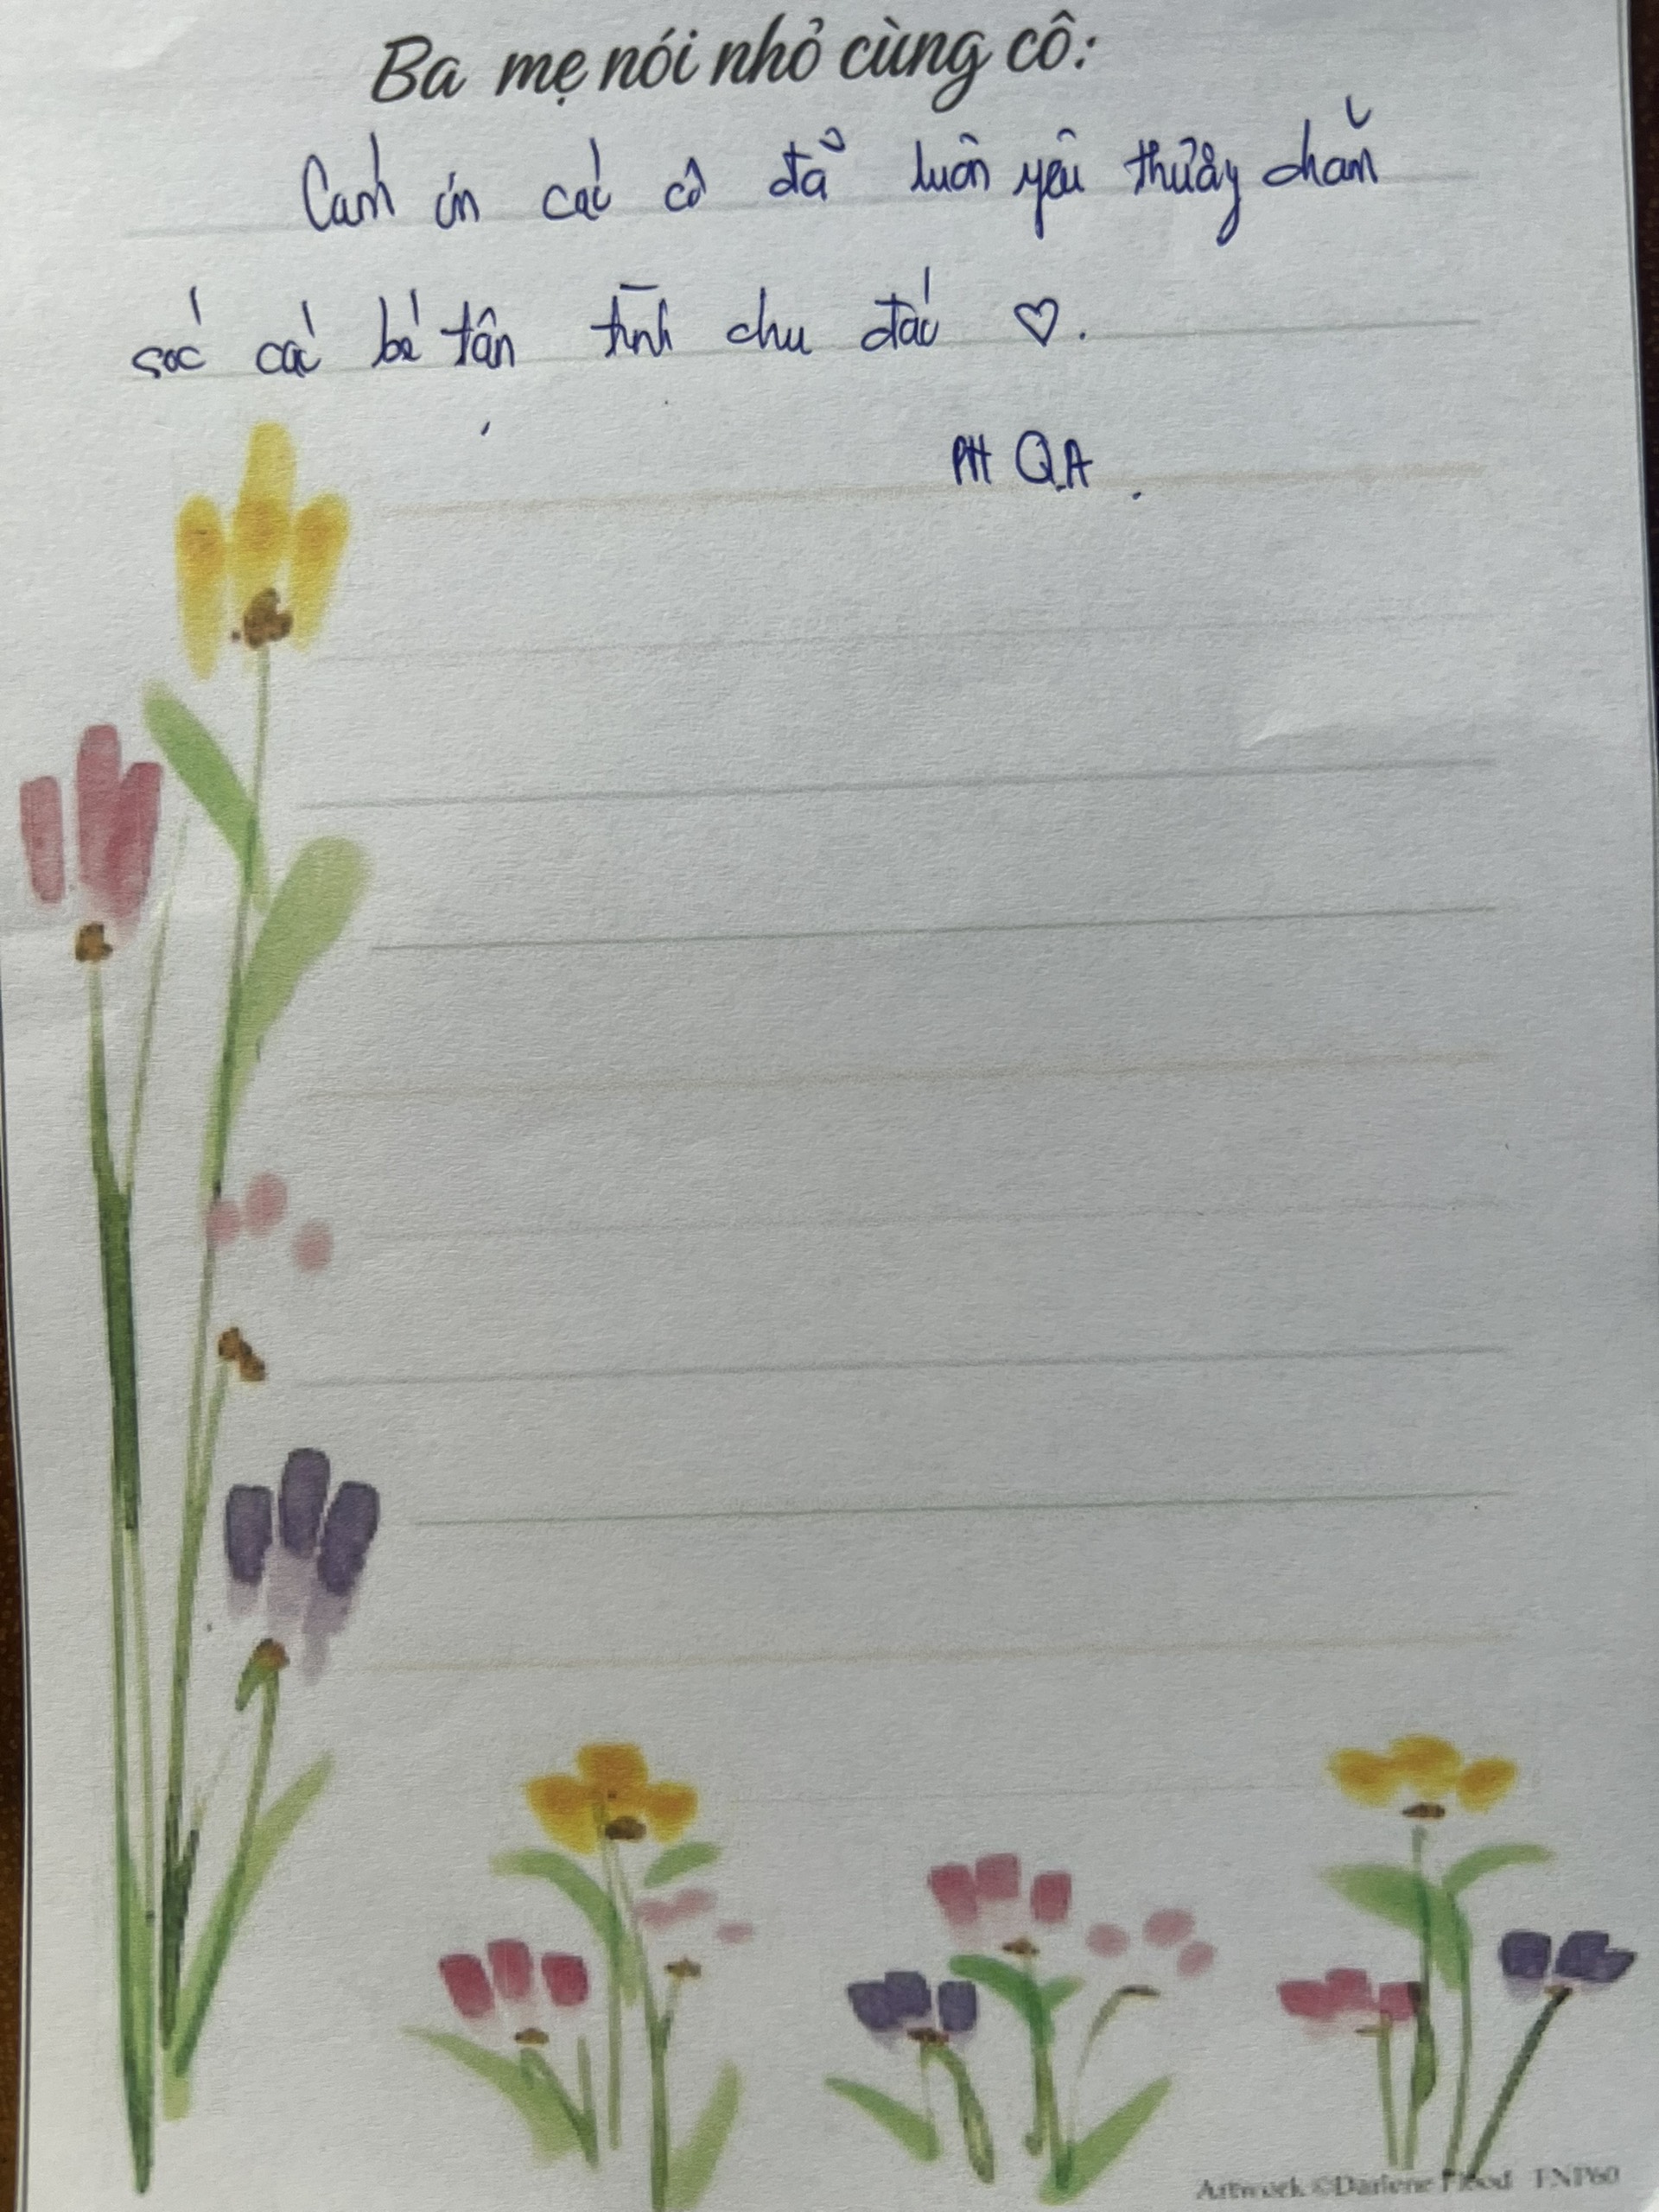 Ba mẹ nói nhỏ cùng cô:
Cảm ơn các cô đã luôn yêu thương chăm
sóc các bé tận tình chu đáo ♡.
PH QA.
Artwork ©Darlene Flood FNP60